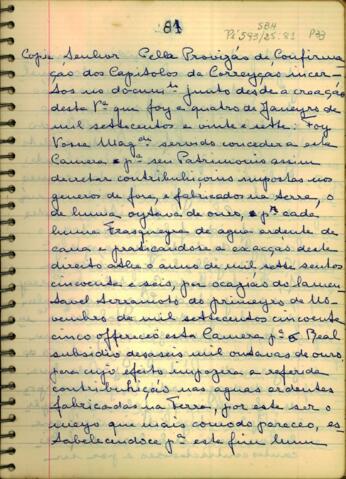 81
SBH
Pi 593/25:81
Copia, Senhor Pella Provizão de Confirma
ção dos Capitolos da Correyção incer-
tos no docum.to junto desde a creação
desta V.a que foy a quatro de Janeyro de
mil settecentos e vinte e sette. Foy
Vossa Mag.de servido conceder a esta
Camera p.a seu Patrimonio assim
decretar contribuiçoins impostas nos
generos de fora, e fabricados na terra, o
de huma oytava de ouro, p.r cada
huma Frasqueyra de agua ardente de
cana e praticandose a exacção deste
direito athe o anno de mil sette sentos
cincoenta e seis, por ocazião do lamen-
tavel Terramoto do primeyro de No-
vembro de mil settecentos cincoenta
cinco offereceo esta Camera p.a o Real
subsidio dezaseis mil outavas de ouro
para cujo efeito impozera a referida
contribuhição nas aguas ardentes
fabricadas na Terra, por este ser o
meyo que mais comodo pareceo, es-
tabelecendoce p.a este fim huma